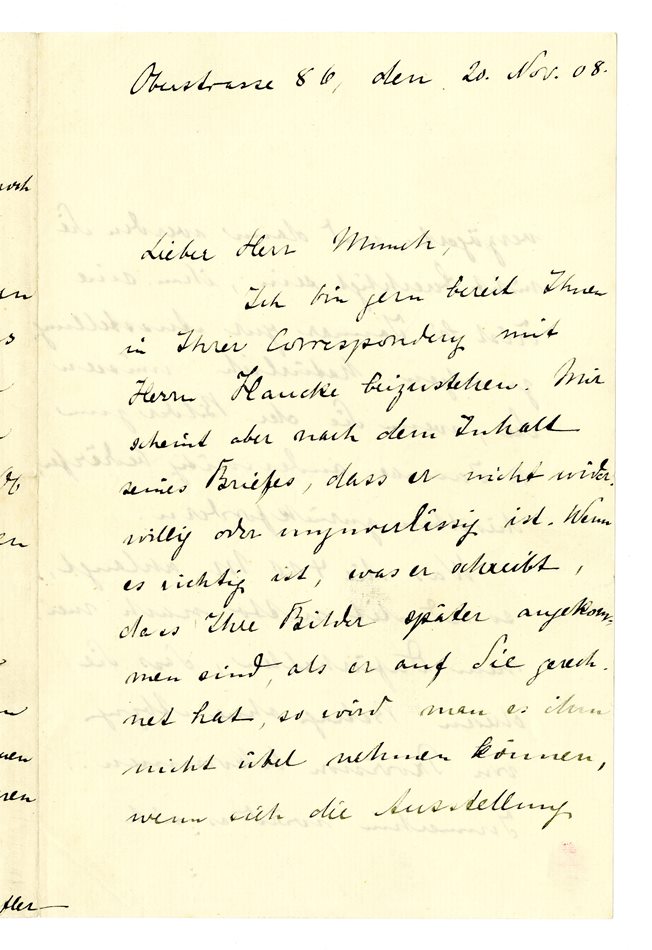 Oberstrasse 86, den 20. Nov. 08.
Lieber Herr Munch,
Ich bin gern bereit Ihnen
in Ihrer Correspondenz mit
Herrn Haucke beizustehen. Mir
scheint aber nach dem Inhalt
seines Briefes, dass er nicht wider-
willig oder unzuverlässig ist. Wenn
es richtig ist, was er schreibt,
dass Ihre Bilder später angekom-
men sind, als er auf Sie gerech-
net hat, so wird man es ihm
nicht übel nehmen können,
wenn sich die Ausstellung